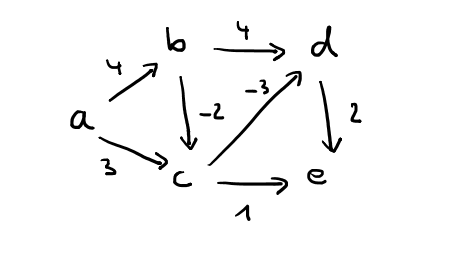 b 4 d
4
-3
a -2 2
3 c e
1